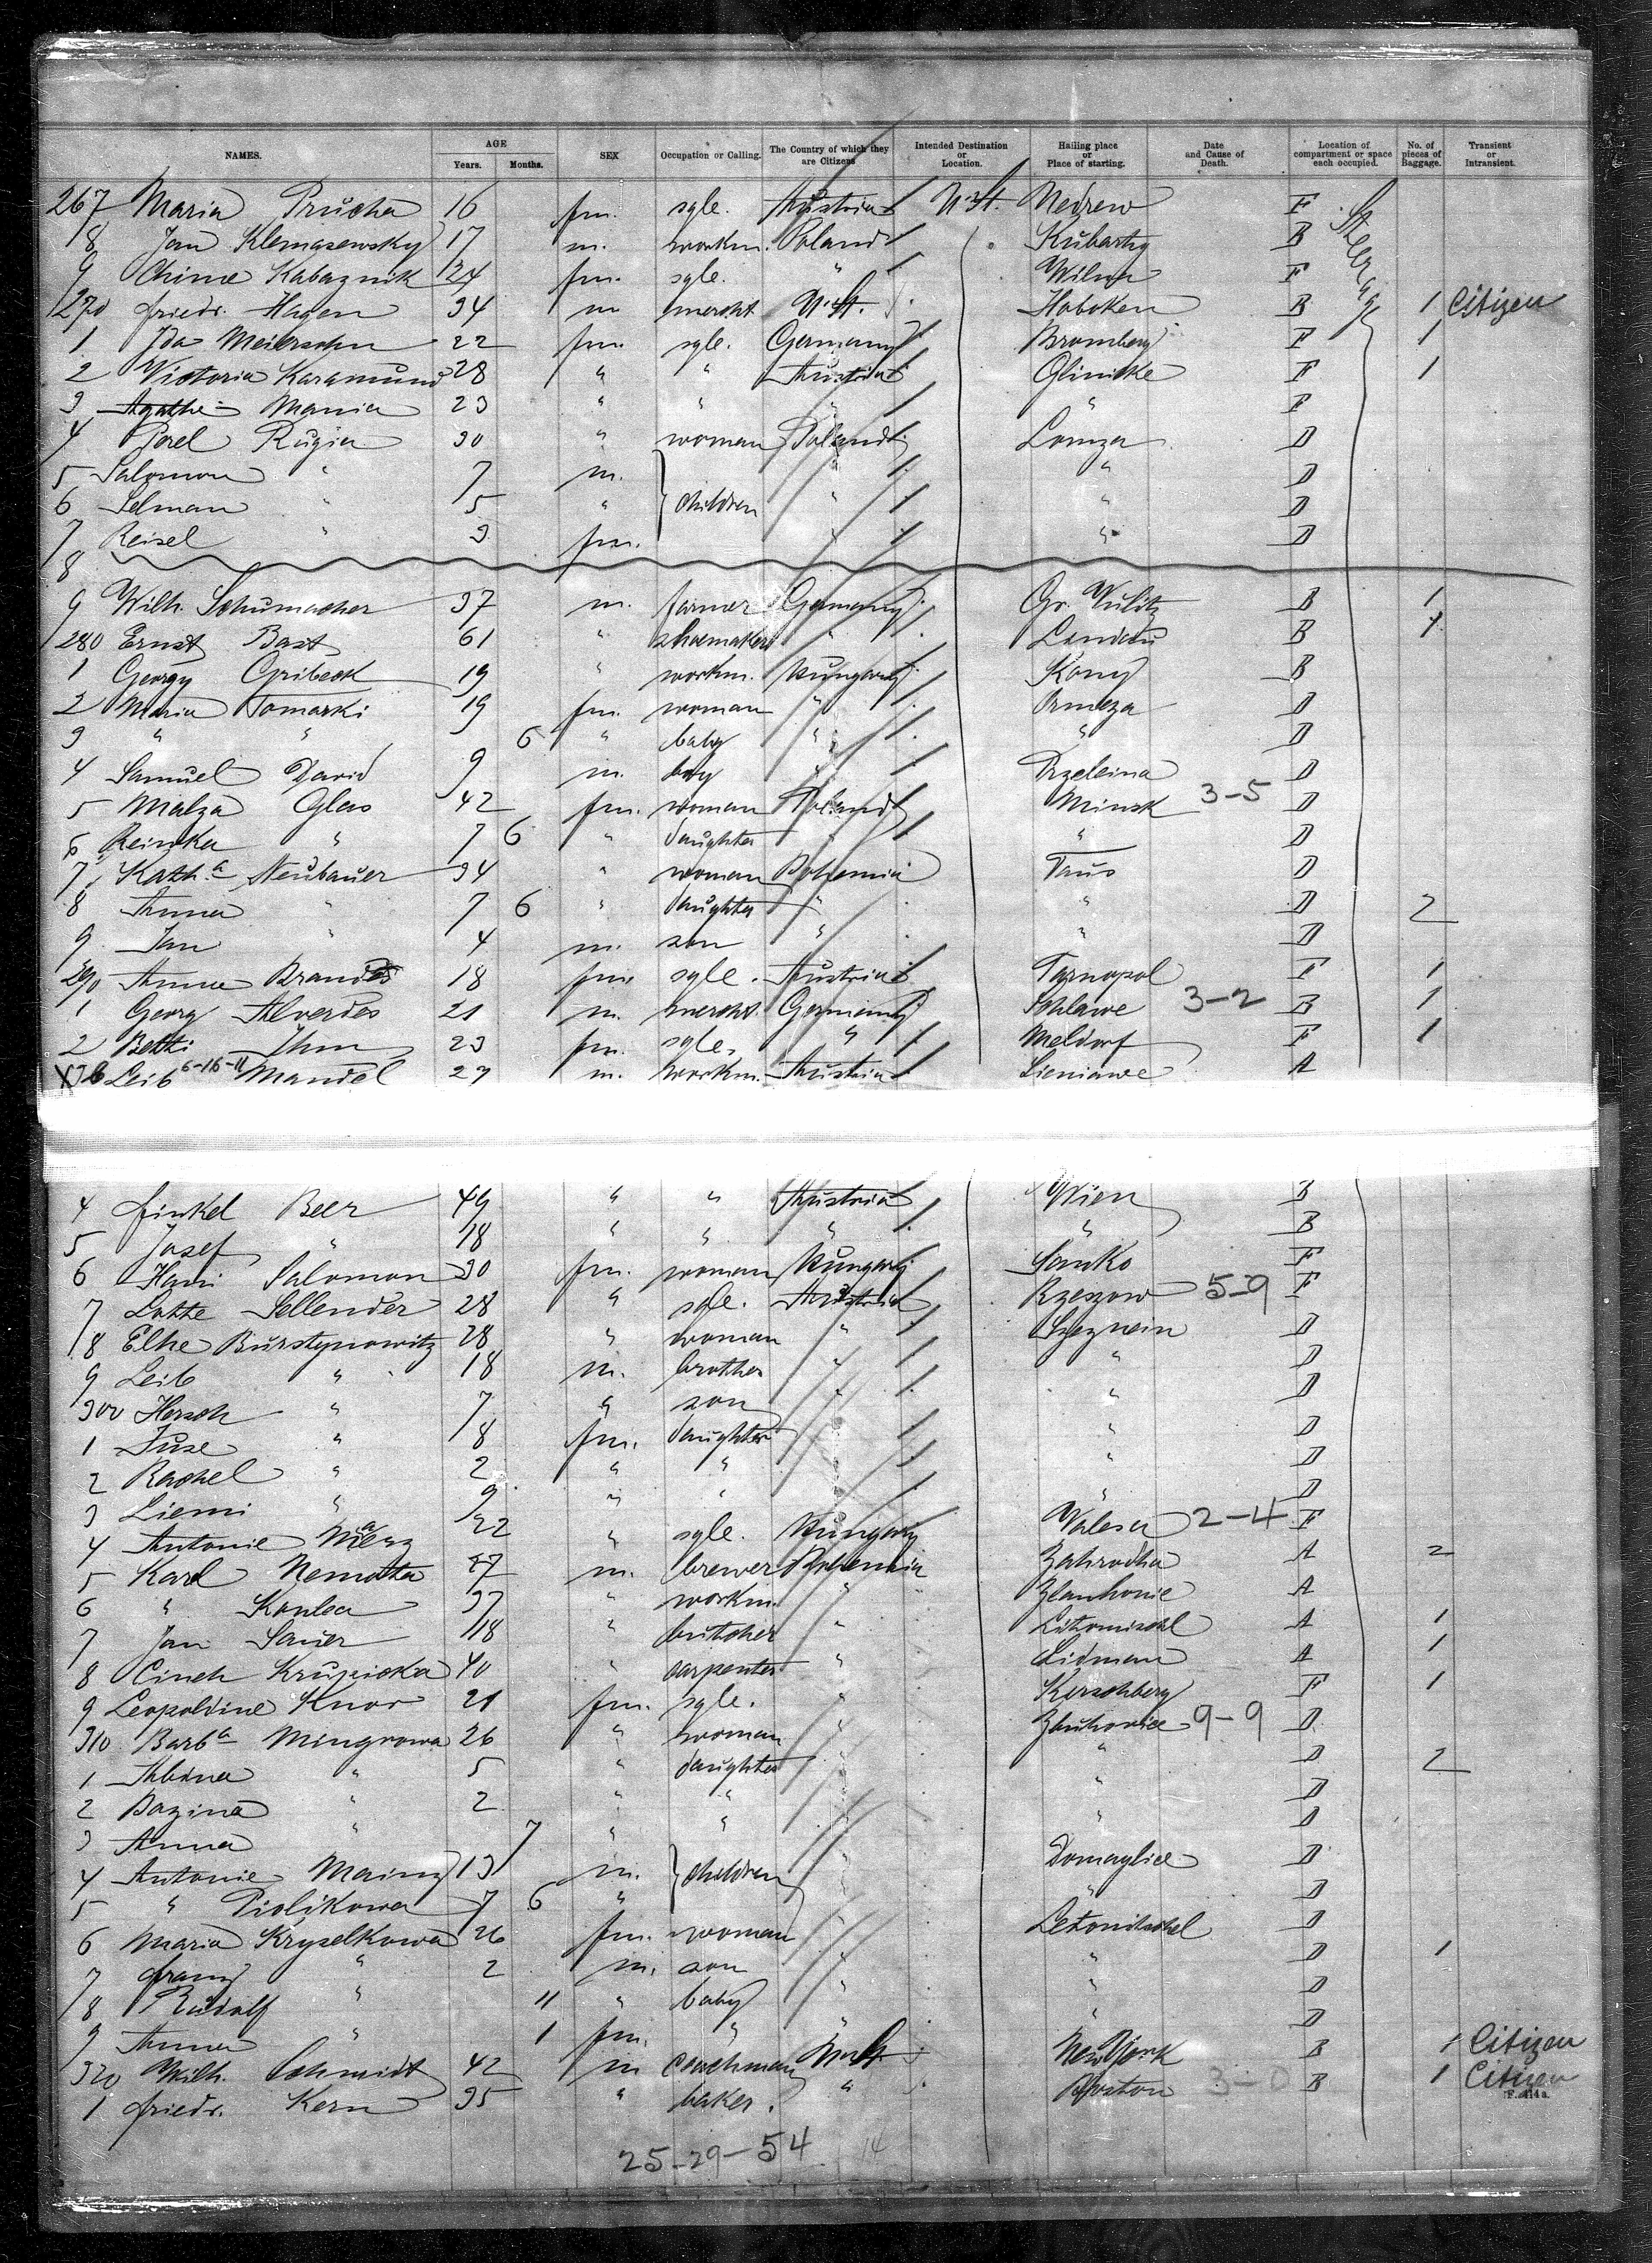 NAMES. AGE Years. Months. SEX Occupation or Calling. The Country of which they are Citizens Intended Destination or Location. Hailing place or Place of starting. Date and Cause of Death. Location of compartment or space each occupied. No. of pieces of Baggage. Transient or Intransient.
267 Maria Prucha 16 fm. sgle. Austria U. St. Nedrew F Steerage
8 Jan Klemasewsky 17 m. workm. Poland Kubarty B
9 Chime Kabaznik 24 fm. sgle. " Wilna F
270 Friedr. Hagen 34 m mercht. U. St. Hoboken B 1 Citizen
1 Ida Meiersohn 22 fm. sgle. Germany Bromberg F 1
2 Victoria Karamund 28 " " Austria Glinicke F 1
3 Agathe Mania 23 " " " " F
4 Perel Rugia 30 " woman Poland Lomza D
5 Salomon " 7 m. " " D
6 Selman " 5 " children " " D
7 Reisel " 3 fm. " " D
8
9 Wilh. Schumacher 37 m. farmer Germany Gr. Wulitz B 1
280 Ernst Bast 61 " shoemaker " Landau B 1
1 Georgy Gribeck 19 " workm. Hungary Kony B
2 Maria Tomarki 19 fm. woman " Ormeza D
3 " " 6 " baby " " D
4 Samuel David 9 m. boy " Przeleina D
5 Malza Glas 42 fm. woman Poland Minsk 3-5 D
6 Reinka " 7 6 " daughter " " D
7 Kath.a Neubauer 34 " woman Bohemia Taus D
8 Anna " 7 6 " daughter " " D 2
9 Jan " 4 m. son " " D
290 Anna Brandes 18 fm. sgle. Austria Tarnopol F 1
1 Georg Alverdes 21 m. mercht. Germany Schlawe 3-2 B 1
2 Betti Ihm 23 fm. sgle. " Meldorf F 1
Leib 6-16-11 Mandel 27 m. workm. Austria Sieniawe A
4 Finkel Beer 49 " " Austria Wien B
5 Josef " 18 " " " " B
6 Hani Salomon 30 fm. woman Hungary Sanko F
7 Lotte Sellender 28 " sgle. Austria Rzeszow 5-9 F
8 Elke Burstynowitz 28 " woman " D
9 Leib " 18 m. brother " " D
300 Hersch " 7 " son " " D
1 Juse " 8 fm. daughter " " D
2 Rachel " 2 " " " D
3 Liemi " 9 " " " D
4 Antonie Merz 22 " sgle. Hungary Valesa 2-4 F
5 Karl Nemetha 27 m. brewer Bohemia Zahrodka A 2
6 " Konlea 37 " workm. " Zlanhonie A
7 Jan Sauer 18 " butcher " Litomischl A 1
8 Cineh Krupicka 40 " carpenter " Lidman A 1
9 Leopoldine Knor 21 fm. sgle. " Kerschberg F 1
310 Barb.a Mingrowa 26 " woman " Zluhovice 9-9 D
1 Albina " 5 " daughter " " D 2
2 Bozina " 2 " " " D
3 Anna " 7 " " " D
4 Antonie Mainz 13 m. children " Domazlice D
5 " Piolikowa 7 6 " " D
6 Maria Kryselkowa 26 fm. woman " Letomischel D
7 Franz " 2 m. son " " D 1
8 Rudolf " 11 " baby " " D
9 Anna " 1 fm. " " " D
320 Wilh. Schmidt 42 m coachman U. St. New York B 1 Citizen
1 Friedr. Kern 35 " baker. " Boston 3-0 B 1 Citizen
F. 414a.
25-29-54 14